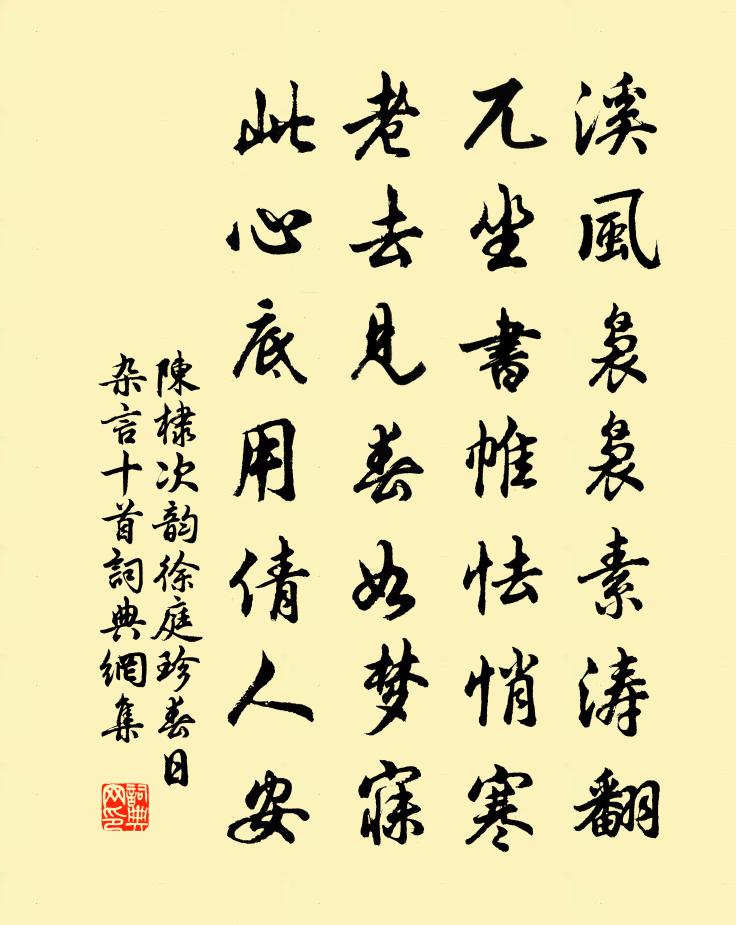 溪風裊裊素涛翻
兀坐書帷怯悄寒
老去見春如梦寐
此心底用倩人安
陳棣次韵徐庭珍春日
杂言十首詞典網集
詞典網印